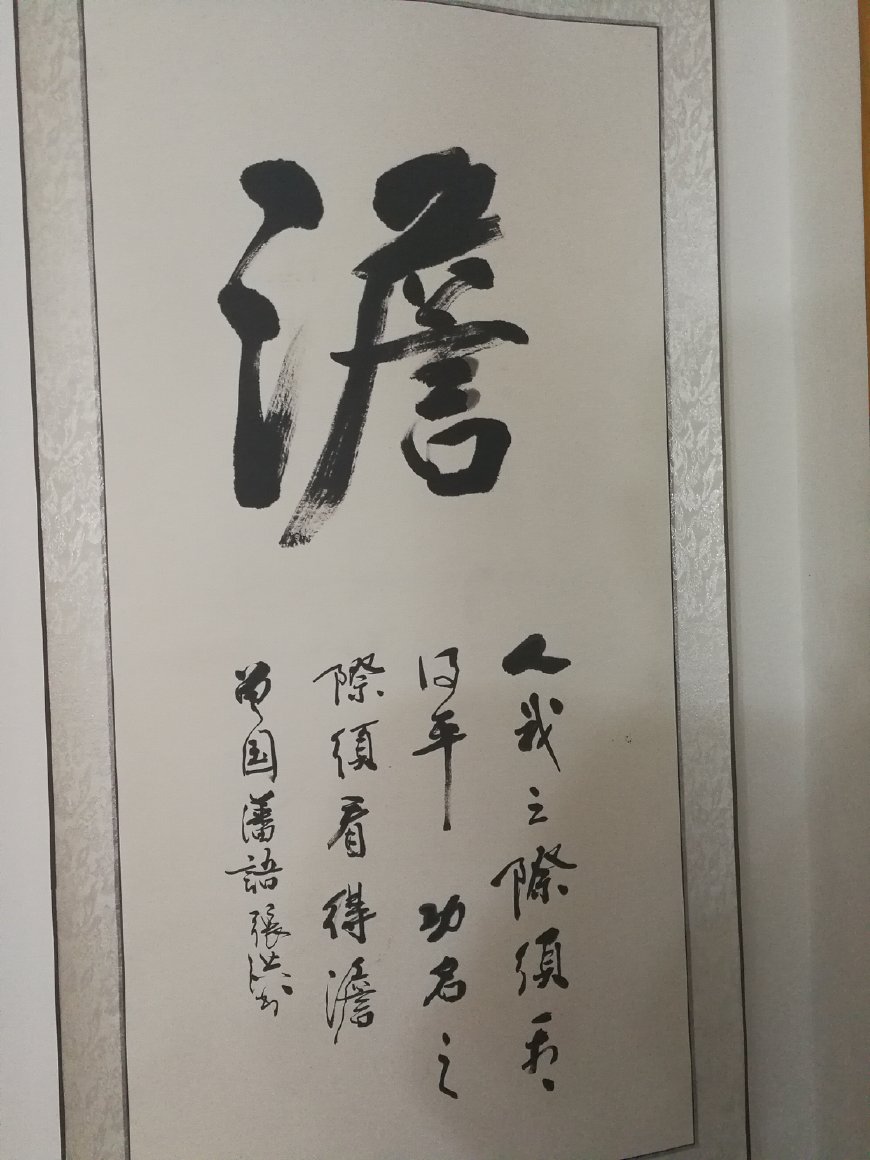 澹
人我之際須看
得平功名之
際須看得澹
曾国藩語張洪